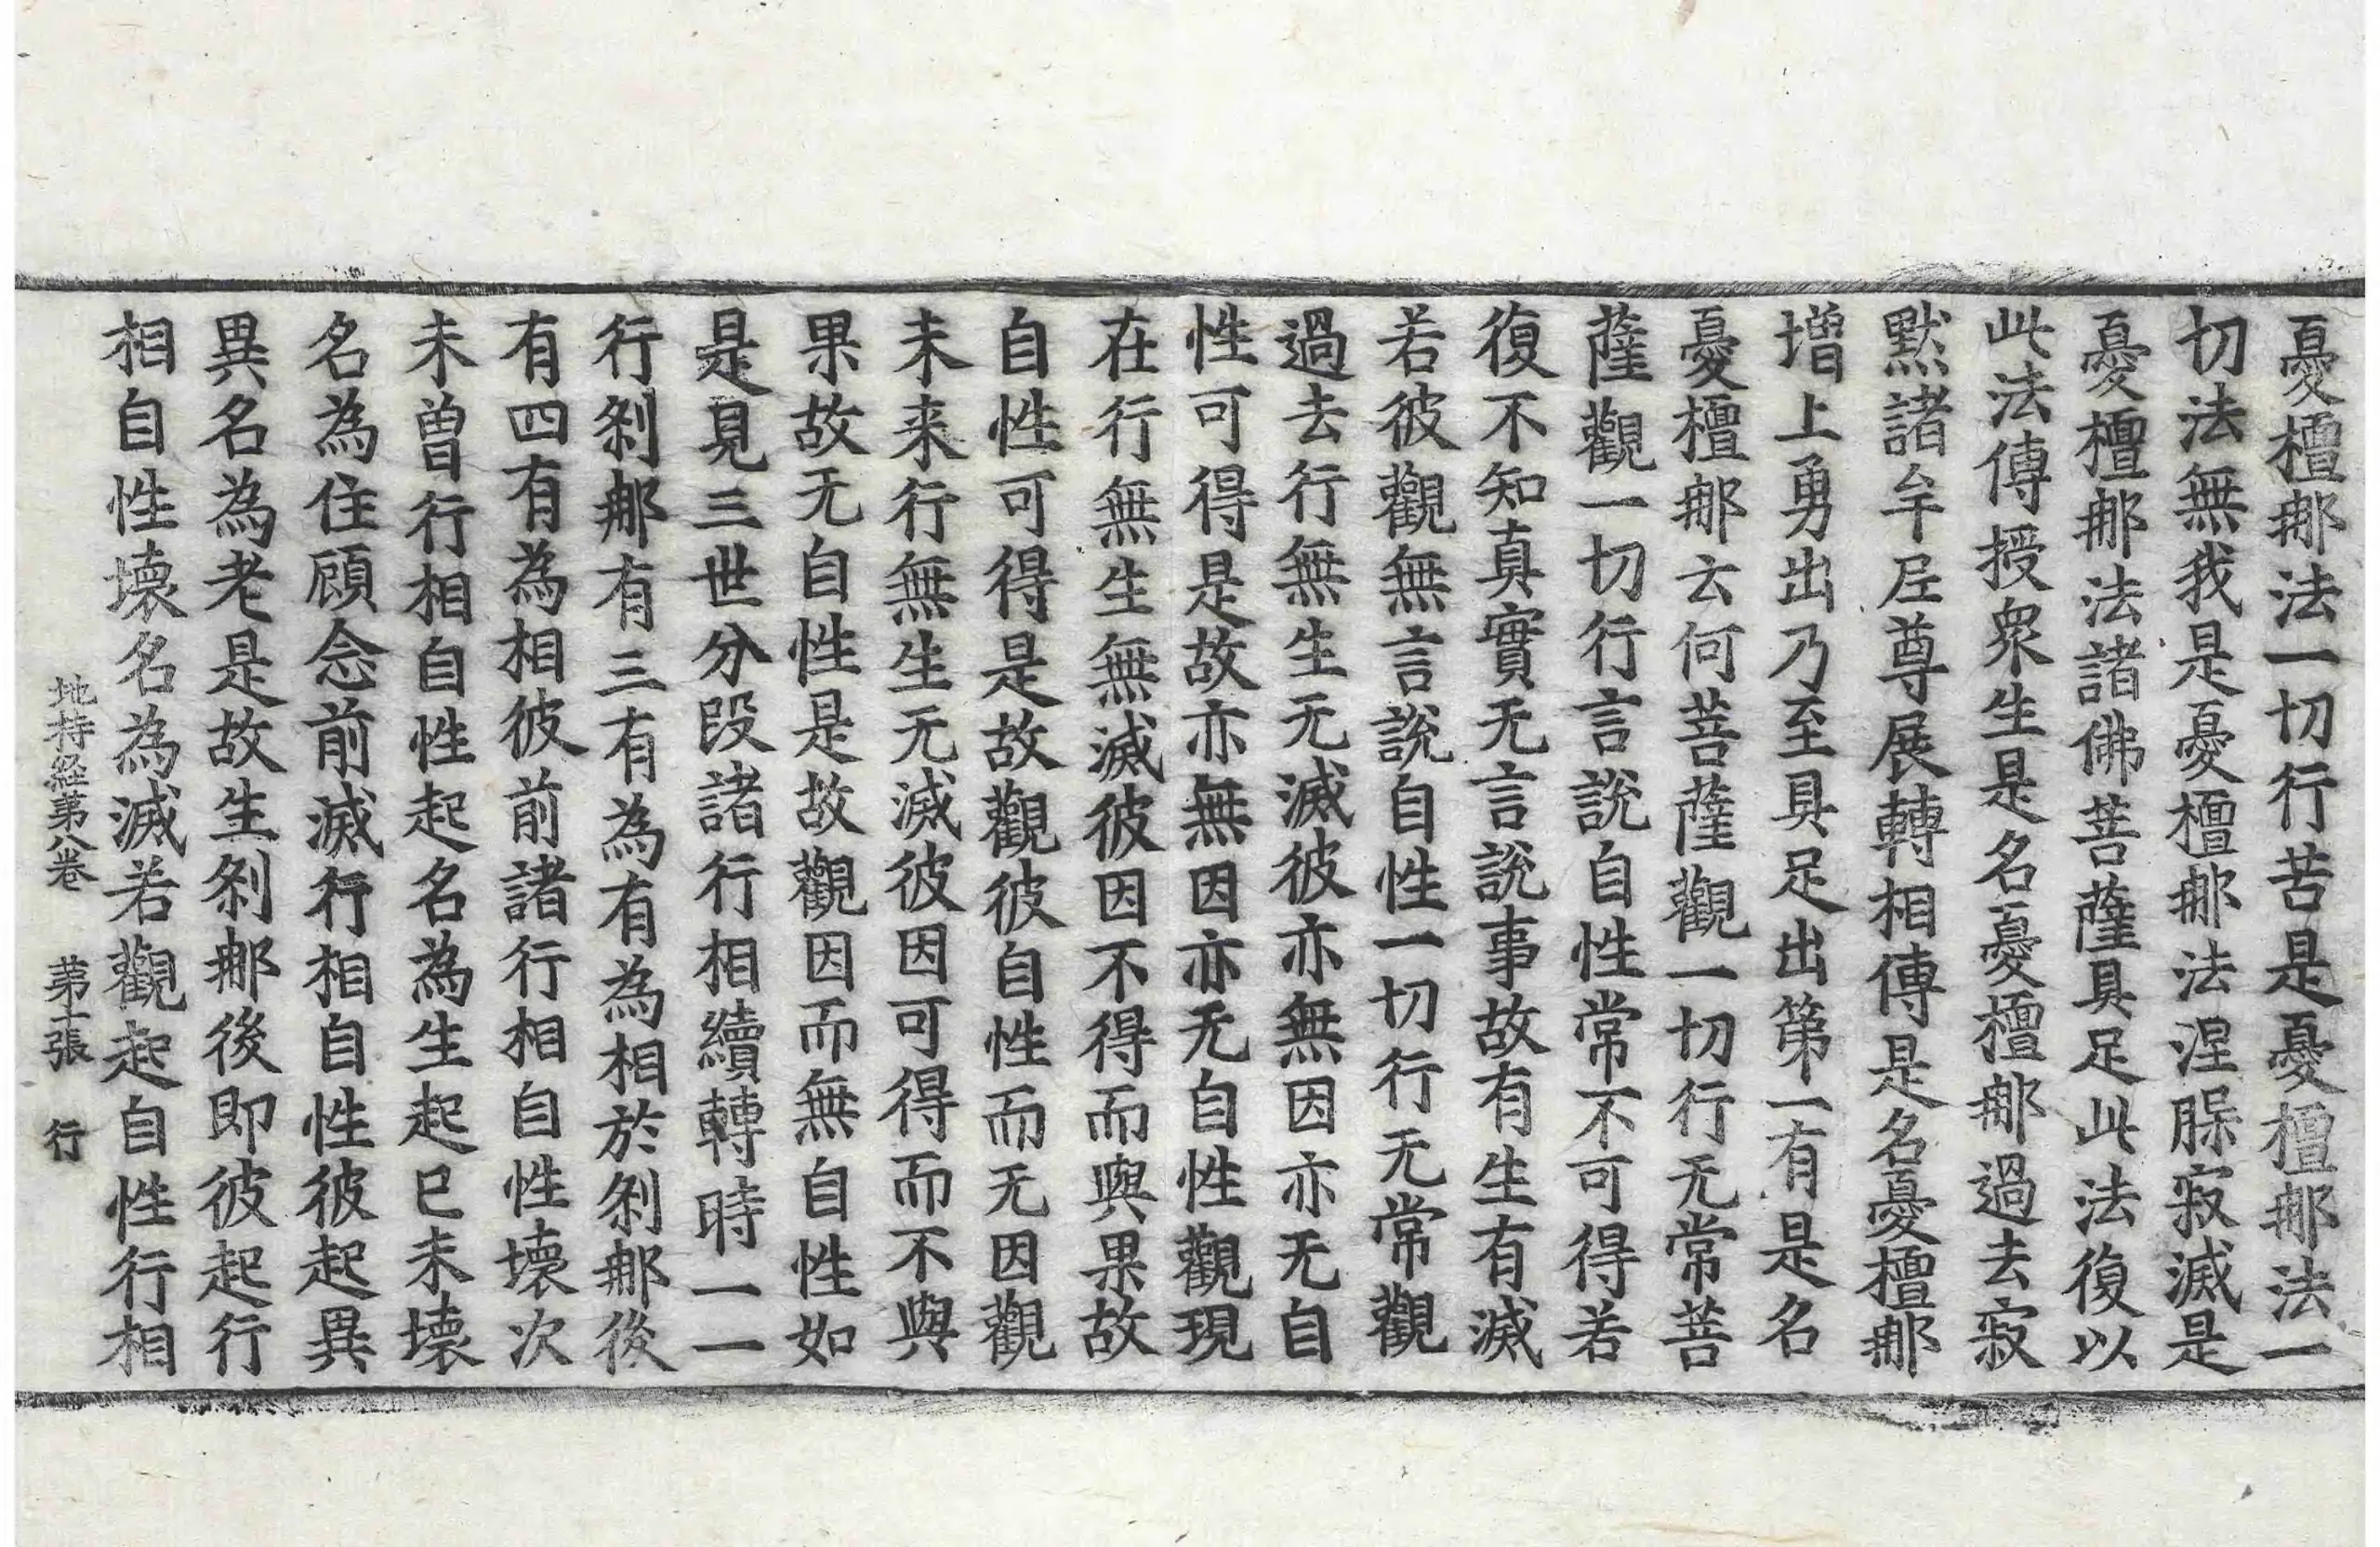 憂檀𨙻法一切行苦是憂檀𨙻法一
切法無我是憂檀𨙻法涅脲寂滅是
憂檀𨙻法諸佛菩薩具足此法復以
此法傳授衆生是名憂檀𨙻過去寂
默諸牟𡰱尊展轉相傳是名憂檀𨙻
增上勇出乃至具足出第一有是名
憂檀𨙻云何菩薩觀一切行无常菩
薩觀一切行言說自性常不可得若
復不知真實无言說事故有生有滅
若彼觀無言說自性一切行无常觀
過去行無生无滅彼亦無因亦无自
性可得是故亦無因亦无自性觀現
在行無生無滅彼因不得而與果故
自性可得是故觀彼自性而无因觀
未来行無生无滅彼因可得而不與
果故无自性是故觀因而無自性如
是見三世分段諸行相續轉時一一
行剎𨙻有三有為有為相於剎𨙻後
有四有為相彼前諸行相自性壞次
未曾行相自性起名為生起已未壞
名為住顧念前滅行相自性彼起異
異名為老是故生剎𨙻後即彼起行
相自性壞名為滅若觀起自性行相
地持経第八卷 第十張 行